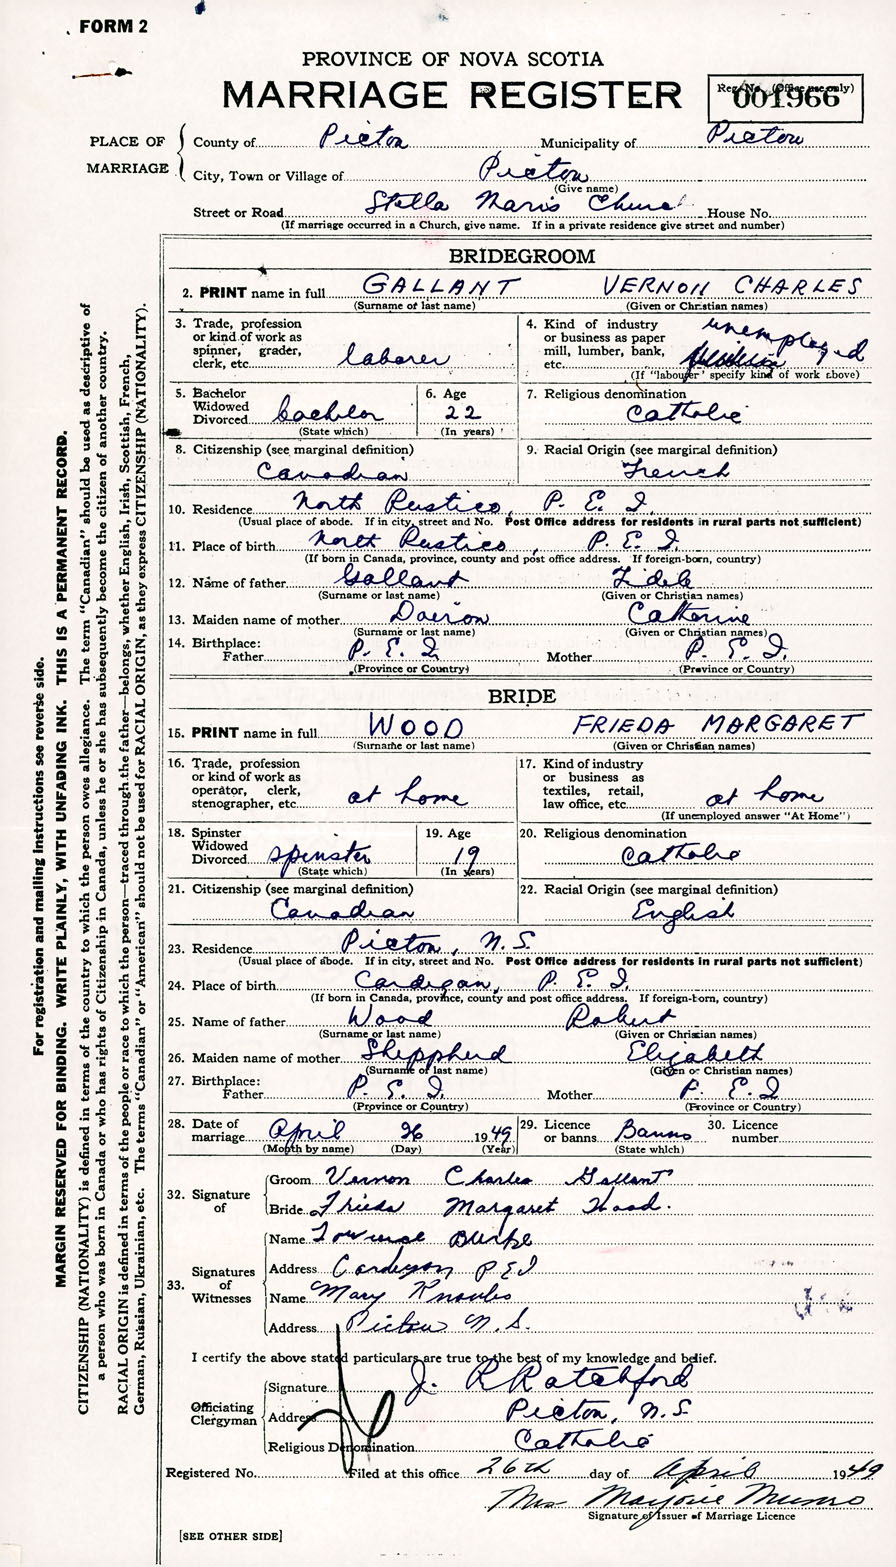 FORM 2
PROVINCE OF NOVA SCOTIA
MARRIAGE REGISTER
Reg. No. (Office use only)
001966
PLACE OF MARRIAGE
County of Pictou Municipality of Pictou
City, Town or Village of Pictou
(Give name)
Street or Road Stella Maris Church House No.
(If marriage occurred in a Church, give name. If in a private residence give street and number)
BRIDEGROOM
2. PRINT name in full GALLANT VERNON CHARLES
(Surname or last name) (Given or Christian names)
3. Trade, profession or kind of work as spinner, grader, clerk, etc. laborer
4. Kind of industry or business as paper mill, lumber, bank, etc. unemployed
(If "labourer" specify kind of work above)
5. Bachelor Widowed Divorced bachelor
(State which)
6. Age 22
(In years)
7. Religious denomination
Catholic
8. Citizenship (see marginal definition)
Canadian
9. Racial Origin (see marginal definition)
French
10. Residence North Rustico, P. E. I.
(Usual place of abode. If in city, street and No. Post Office address for residents in rural parts not sufficient)
11. Place of birth North Rustico, P. E. I.
(If born in Canada, province, county and post office address. If foreign-born, country)
12. Name of father Gallant Fidele
(Surname or last name) (Given or Christian names)
13. Maiden name of mother Doiron Catherine
(Surname or last name) (Given or Christian names)
14. Birthplace:
Father P. E. I. Mother P. E. I.
(Province or Country) (Province or Country)
BRIDE
15. PRINT name in full WOOD FRIEDA MARGARET
(Surname or last name) (Given or Christian names)
16. Trade, profession or kind of work as operator, clerk, stenographer, etc. at home
17. Kind of industry or business as textiles, retail, law office, etc. at home
(If unemployed answer "At Home")
18. Spinster Widowed Divorced spinster
(State which)
19. Age 19
(In years)
20. Religious denomination
Catholic
21. Citizenship (see marginal definition)
Canadian
22. Racial Origin (see marginal definition)
English
23. Residence Pictou, N.S.
(Usual place of abode. If in city, street and No. Post Office address for residents in rural parts not sufficient)
24. Place of birth Cardigan, P. E. I.
(If born in Canada, province, county and post office address. If foreign-born, country)
25. Name of father Wood Robert
(Surname or last name) (Given or Christian names)
26. Maiden name of mother Sheppherd Elizabeth
(Surname of last name) (Given or Christian names)
27. Birthplace:
Father P. E. I. Mother P. E. I
(Province or Country) (Province or Country)
28. Date of marriage April 26 1949
(Month by name) (Day) (Year)
29. Licence or banns Banns
(State which)
30. Licence number
32. Signature of
Groom Vernon Charles Gallant
Bride Frieda Margaret Wood.
33. Signatures of Witnesses
Name Burke
Address Cardigan P E I
Name Mary Knowles
Address Pictou N. S.
I certify the above stated particulars are true to the best of my knowledge and belief.
Officiating Clergyman
Signature J. R Ratchford
Address Pictou, N.S.
Religious Denomination Catholic
Registered No. Filed at this office 26th day of April 1949
Mrs Marjorie Munro
Signature of Issuer of Marriage Licence
[SEE OTHER SIDE]
For registration and mailing instructions see reverse side.
MARGIN RESERVED FOR BINDING. WRITE PLAINLY, WITH UNFADING INK. THIS IS A PERMANENT RECORD.
CITIZENSHIP (NATIONALITY) is defined in terms of the country to which the person owes allegiance. The term "Canadian" should be used as descriptive of
a person who was born in Canada or who has rights of Citizenship in Canada, unless he or she has subsequently become the citizen of another country.
RACIAL ORIGIN is defined in terms of the people or race to which the person—traced through the father—belongs, whether English, Irish, Scottish, French,
German, Russian, Ukrainian, etc. The terms "Canadian" or "American" should not be used for RACIAL ORIGIN, as they express CITIZENSHIP (NATIONALITY).